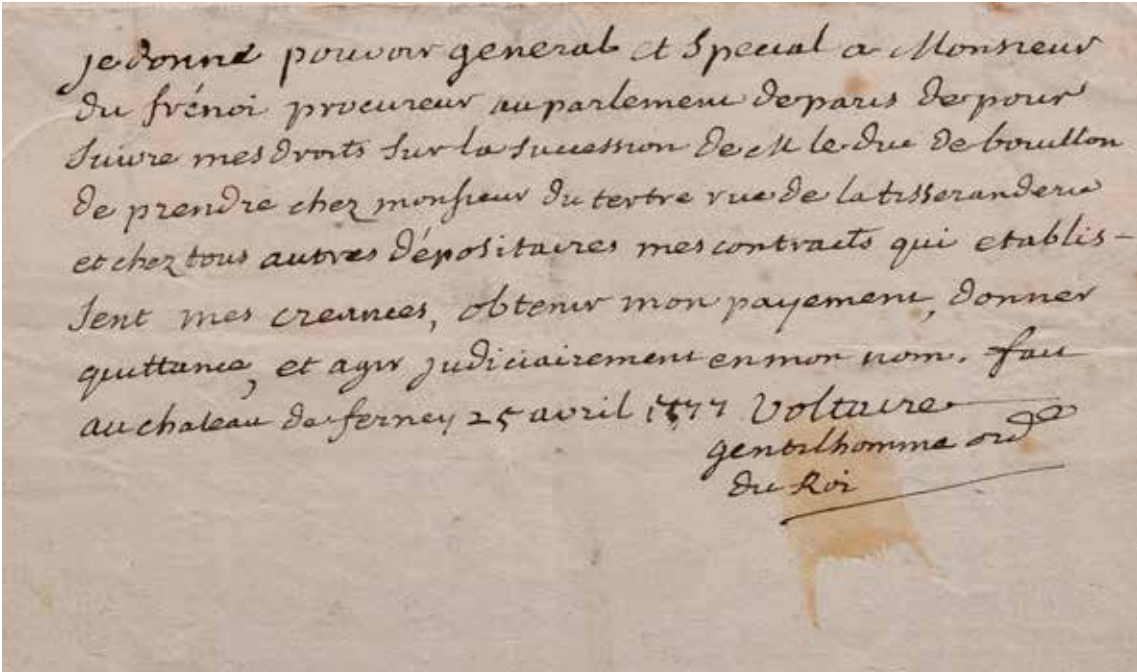 je donne pouvoir general et special a Monsieur
du frénoi procureur au parlement de paris de pour
suivre mes droits sur la succession de M le duc de bouillon
de prendre chez monsieur du tertre rue de la tisseranderie
et chez tous autres dépositaires mes contracts qui etablis-
sent mes creances, obtenir mon payement, donner
quittance, et agir judiciairement en mon nom. fait
au chateau de ferney 25 avril 1777 Voltaire
gentilhomme ord^e
du Roi